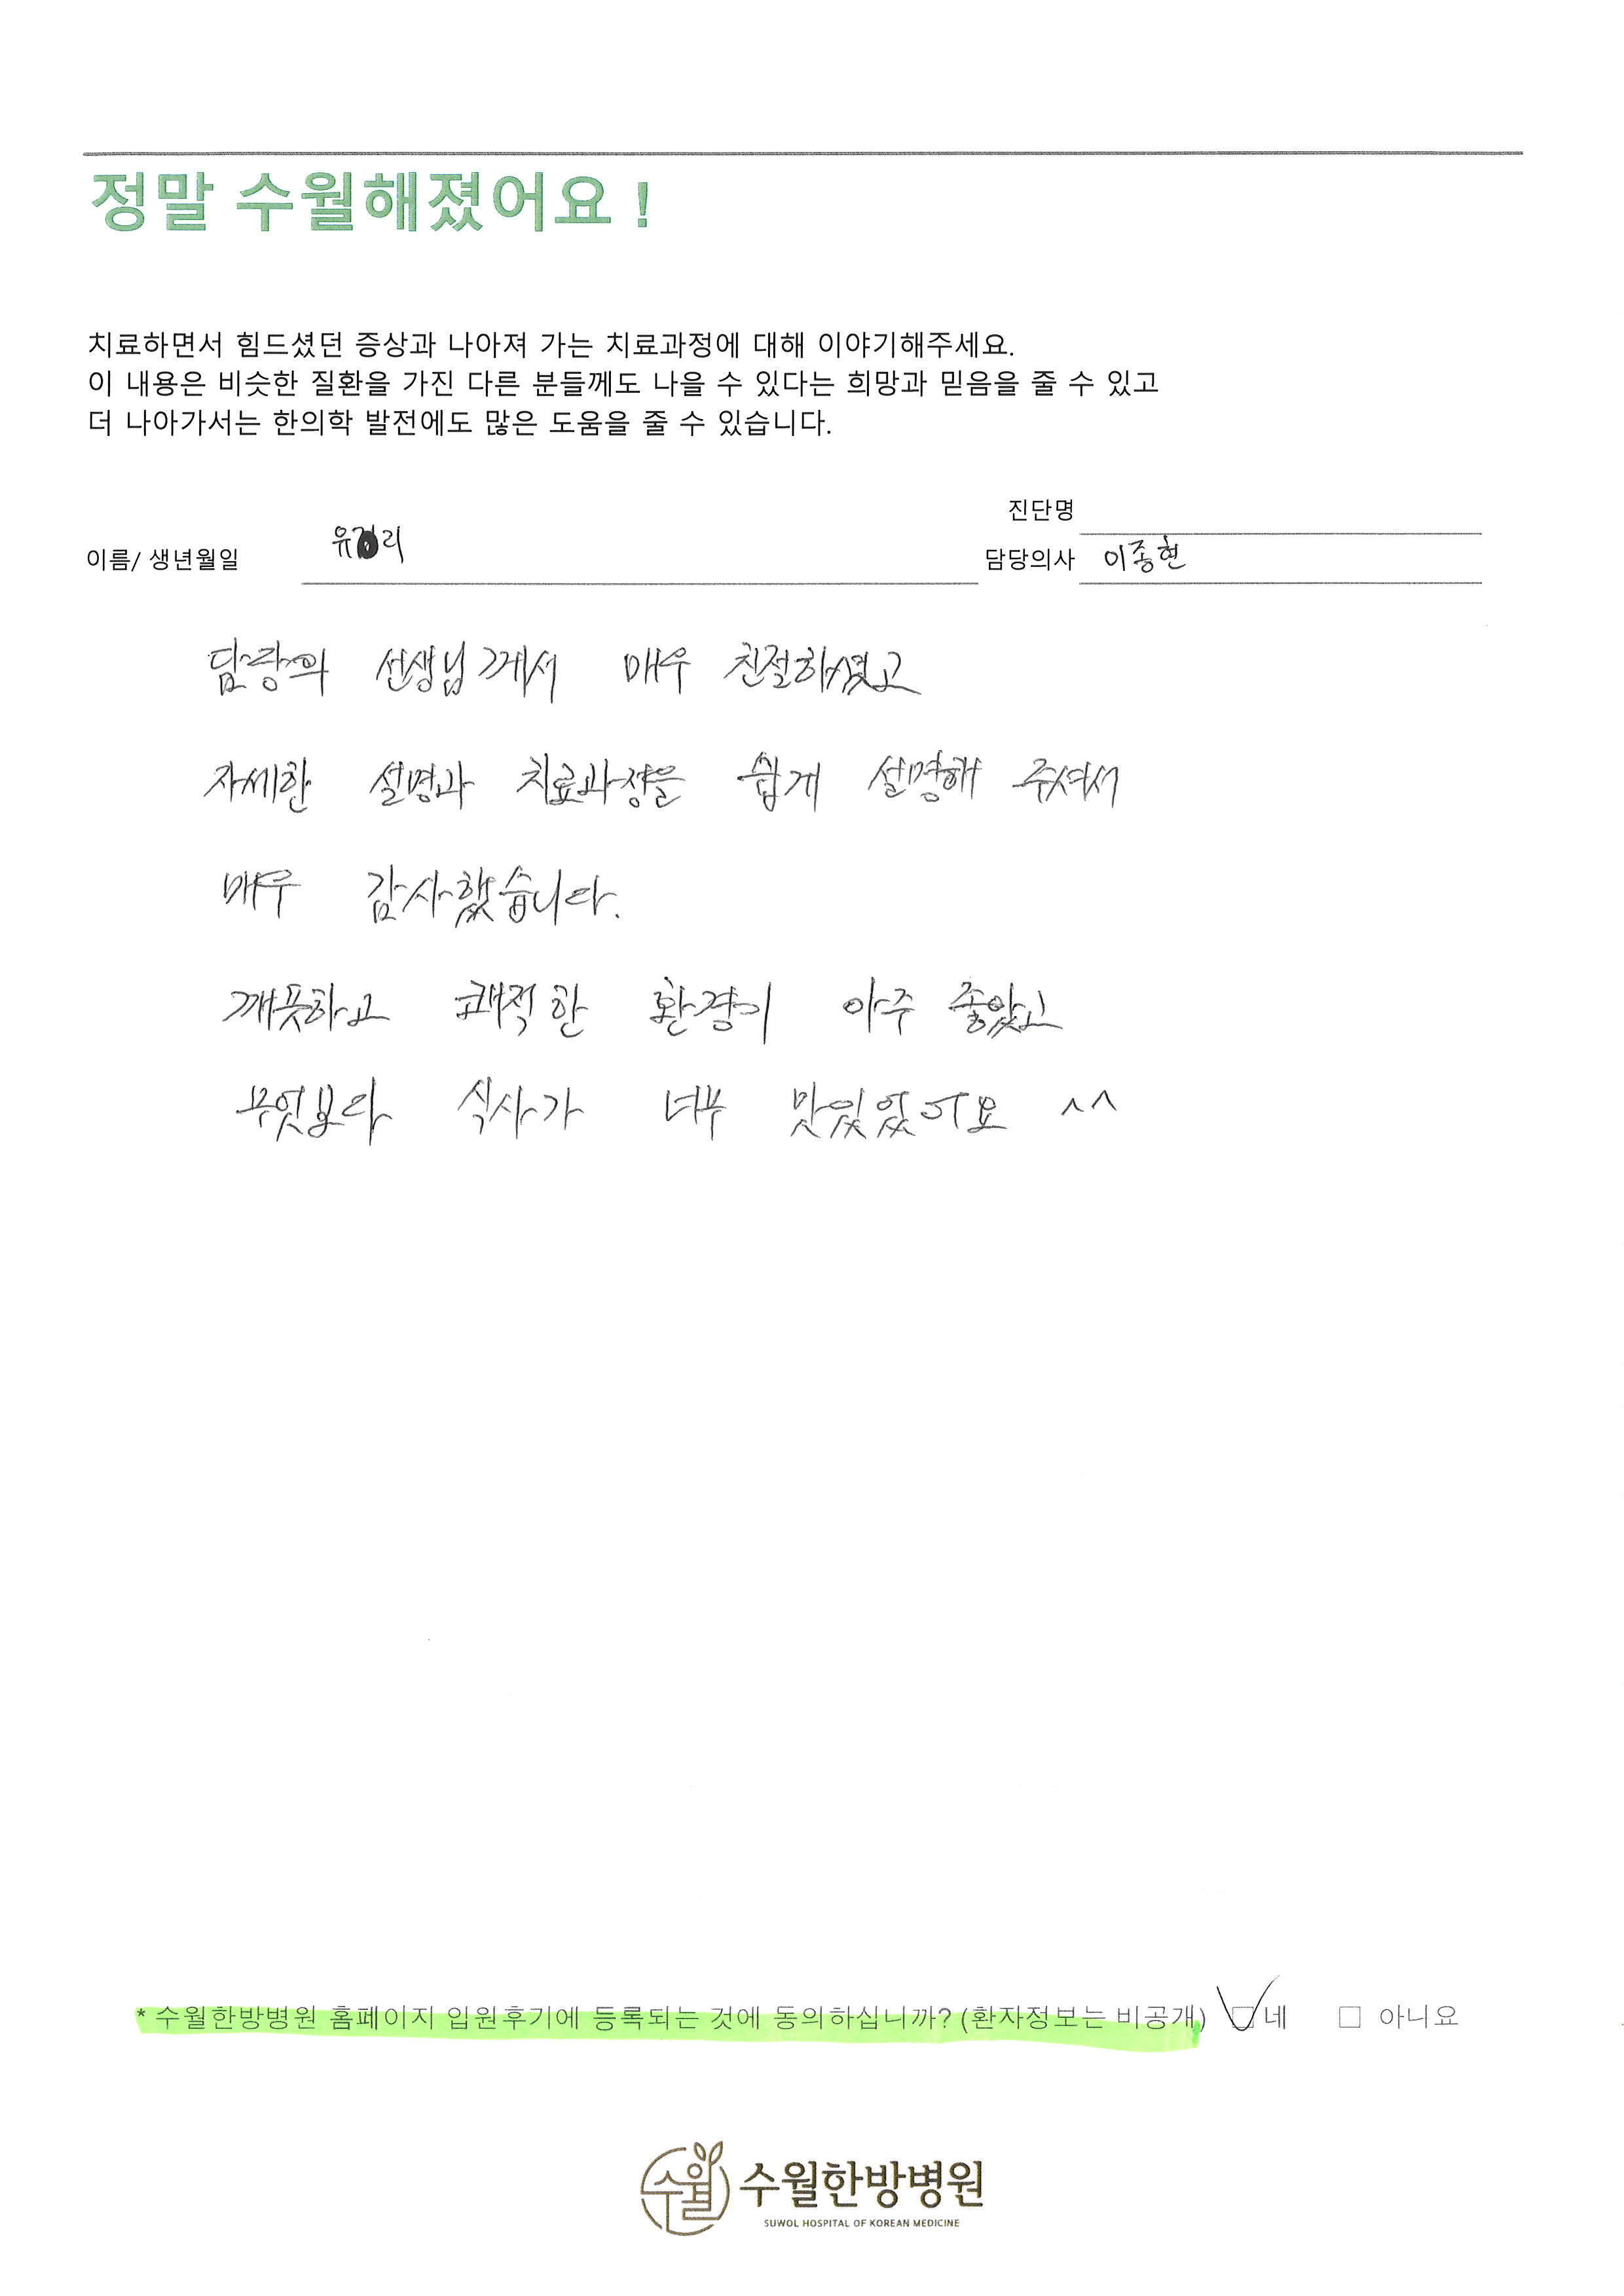 정말 수월해졌어요 !
치료하면서 힘드셨던 증상과 나아져 가는 치료과정에 대해 이야기해주세요.
이 내용은 비슷한 질환을 가진 다른 분들께도 나을 수 있다는 희망과 믿음을 줄 수 있고
더 나아가서는 한의학 발전에도 많은 도움을 줄 수 있습니다.
진단명
이름/ 생년월일 유 리
담당의사 이종현
담당의 선생님께서 매우 친절하셨고
자세한 설명과 치료과정을 쉽게 설명해 주셔서
매우 감사했습니다.
깨끗하고 쾌적한 환경이 아주 좋았고
무엇보다 식사가 너무 맛있었어요 ^^
* 수월한방병원 홈페이지 입원후기에 등록되는 것에 동의하십니까? (환자정보는 비공개) 네 아니요
수월
수월한방병원
SUWOL HOSPITAL OF KOREAN MEDICINE